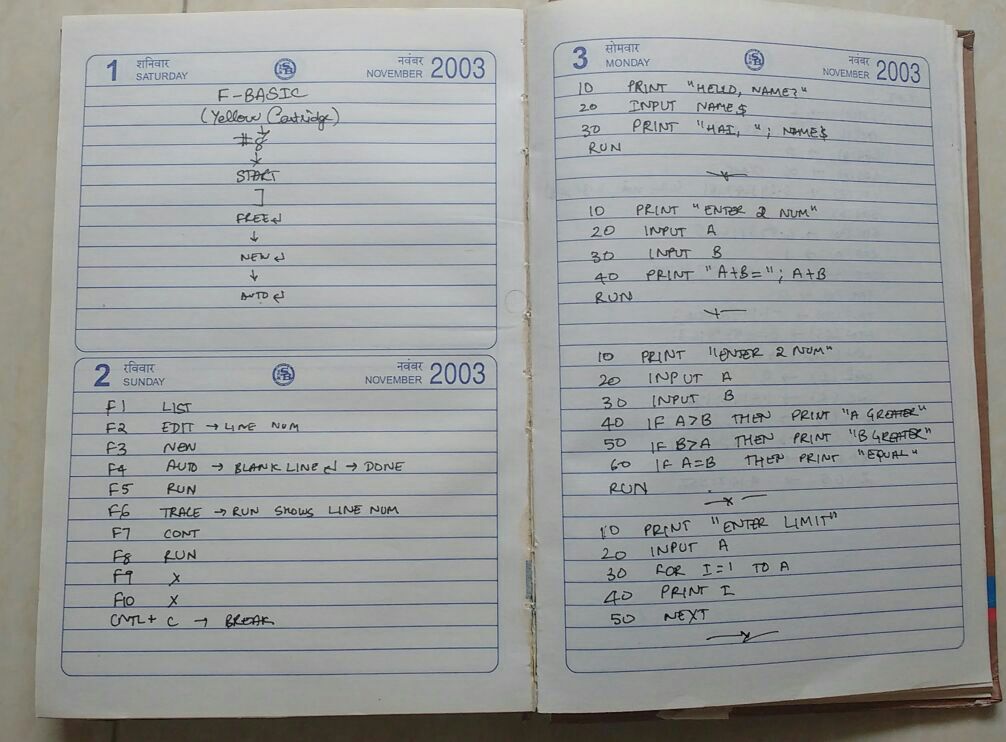 1 शनिवार SATURDAY नवंबर NOVEMBER 2003
F-BASIC
(Yellow Cartridge)
#8
START
]
FREE↵
↓
NEW↵
↓
AUTO↵
2 रविवार SUNDAY नवंबर NOVEMBER 2003
F1 LIST
F2 EDIT → LINE NUM
F3 NEW
F4 AUTO → BLANK LINE ↵ → DONE
F5 RUN
F6 TRACE → RUN SHOWS LINE NUM
F7 CONT
F8 RUN
F9 X
F10 X
CNTL + C → BREAK
3 सोमवार MONDAY नवंबर NOVEMBER 2003
10 PRINT "HELLO, NAME?"
20 INPUT NAME$
30 PRINT "HAI, "; NAME$
RUN
10 PRINT "ENTER 2 NUM"
20 INPUT A
30 INPUT B
40 PRINT "A+B="; A+B
RUN
10 PRINT "ENTER 2 NUM"
20 INPUT A
30 INPUT B
40 IF A>B THEN PRINT "A GREATER"
50 IF B>A THEN PRINT "B GREATER"
60 IF A=B THEN PRINT "EQUAL"
RUN
10 PRINT "ENTER LIMIT"
20 INPUT A
30 FOR I=1 TO A
40 PRINT I
50 NEXT